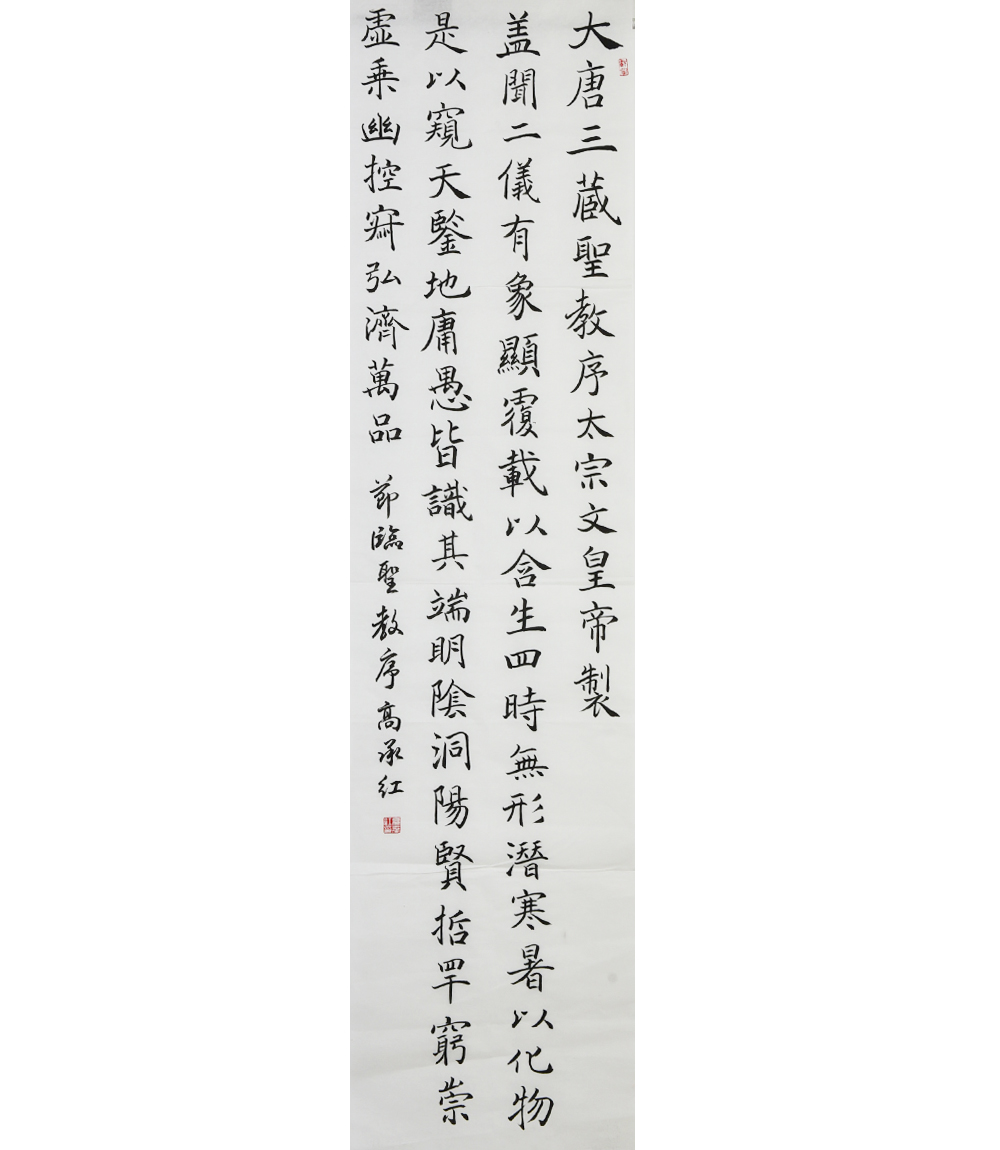 大唐三蔵聖教序太宗文皇帝製
盖聞二儀有象顯覆載以含生四時無形潛寒暑以化物
是以窺天鑒地庸愚皆識其端明陰洞陽賢哲罕窮崇
虛乘幽控寂弘濟萬品
節臨聖教序高承红